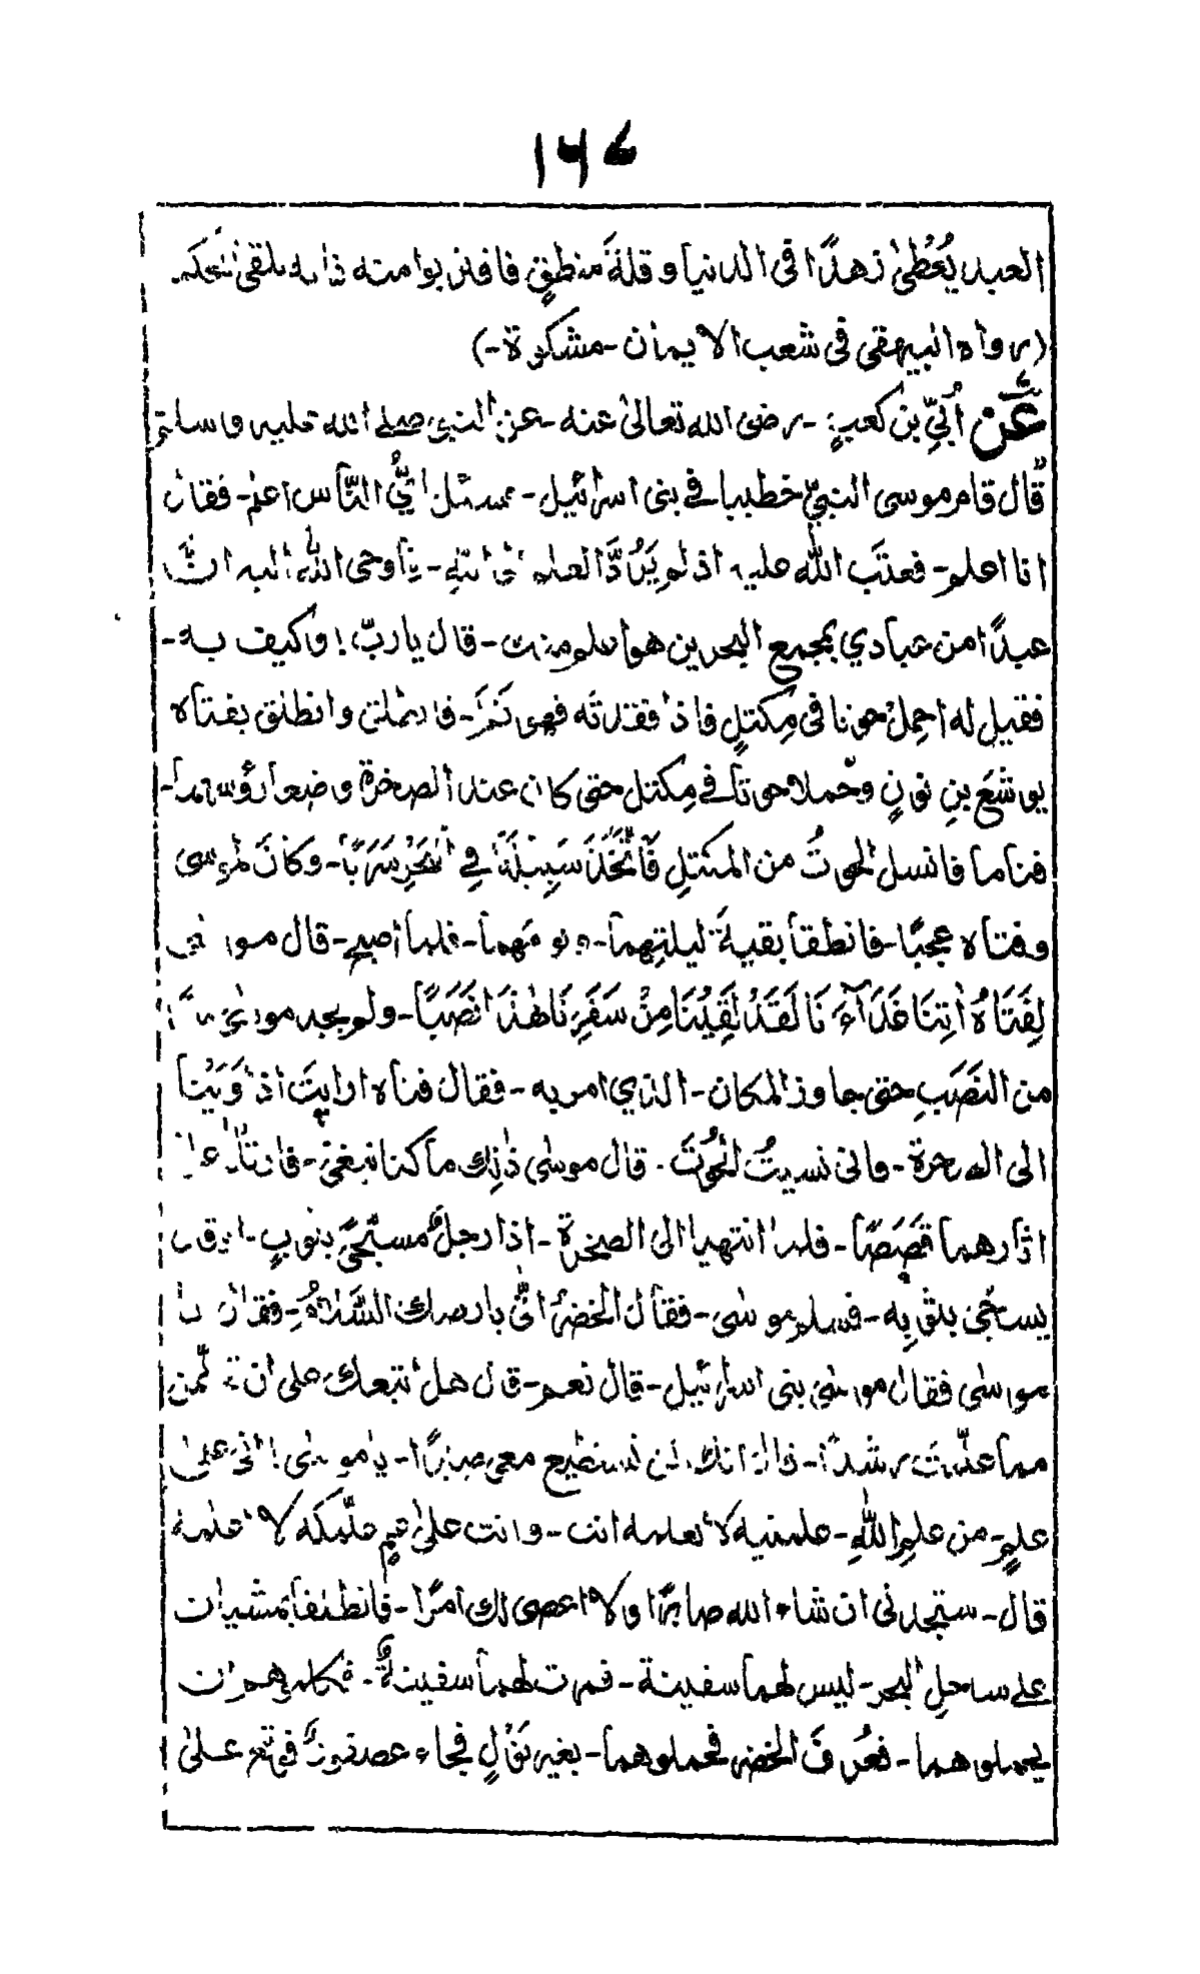 ١٦٧
العبد يُعْطىٰ زهدًا فى الدنيا و قلةَ منطقٍ فاقتربوا منه فانه يلقى الحكمة
(رواه البيهقى فى شعب الايمان - مشكوة -)
عَنْ اُبَيِّ بن كعبٍ - رضى الله تعالىٰ عنه - عن النبى صلى الله عليه وسلم
قال قام موسى النبيّ خطيبا فى بنى اسرائيل - فسئل ايُّ النّاس اعلم - فقال
انا اعلم - فعتب الله عليه اذ لم يَرُدَّ العلم الى الله - فاوحى الله اليه انّ
عبدًا من عبادي بمجمع البحرين هو اعلم منك - قال يا ربّ ! وكيف به -
فقيل له احمِلْ حوتا فى مِكتلٍ فاذا فقدته فهو ثَمَّ - فانطلق وانطلق بفتاه
يوشعَ بنِ نونٍ وحملا حوتا فى مِكتل حتى كان عند الصخرة وضعا رؤسهما -
فناما فانسل الحوتُ من المكتلِ فَاتَّخَذَ سَبِيْلَهٗ فِي الْبَحْرِ سَرَبًا - وكانَ لموسى
وفتاه عجبًا - فانطلقا بقيةَ ليلتِهما - ويومَهما - فلما اصبح - قال موسى
لِفَتَاهُ اٰتِنَا غَدَآءَنَا لَقَدْ لَقِيْنَا مِنْ سَفَرِنَا هٰذَا نَصَبًا - ولم يجد موسىٰ مسًّا
من النَّصَبِ حتى جاوز المكان - الذي امر به - فقال فتاه ارايتَ اذ اَوَيْنا
الى الصخرة - فانى نسيتُ الحُوْتَ - قال موسىٰ ذٰلِك ما كنا نبغىْ - فارتدّا علىٰ
اثارهما قَصَصًا - فلما انتهيا الى الصخرة - اذا رجلٌ مسجًّى بثوبٍ - اوقال
يسجّى بثوبِه - فسلم موسىٰ - فقال الخضرُ انّٰى بارضك السَّلامُ - فقال انا
موسىٰ فقال موسىٰ بنى اسرائيل - قال نعم - قال هل اتبعك على ان تعلّمن
مما علّمت رشدًا - قال انك لن تستطيع معى صبرًا - يا موسىٰ ! انى علىٰ
علمٍ - من علمِ اللهِ - علمنيه لا تعلمه انت - وانت علىٰ علمٍ علّمكه لا اعلمه
قال - ستجدنى ان شاء الله صابرًا ولا اعصى لك امرًا - فانطلقا يمشيان
على ساحلِ البحر - ليس لهما سفينة - فمرت لهما سفينةٌ - فكلموهم ان
يحملوهما - فعُرِفَ الخضر فحملوهما - بغير نَوْلٍ فجاء عصفورٌ فوقع علىٰ